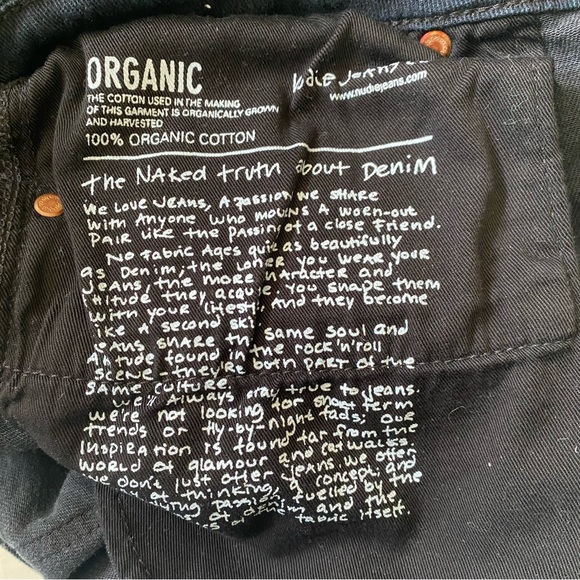 ORGANIC
THE COTTON USED IN THE MAKING
OF THIS GARMENT IS ORGANICALLY GROWN
AND HARVESTED
100% ORGANIC COTTON
www.nudiejeans.com
the NAKED truth about DENIM
We Love JEANS, A PASSION we SHARE
with Anyone who A worn-out
PAIR Like the PASSING of a close Friend.
No Fabric Ages as beautifully
as Denim, the you weAR your
JEANS, the more and
they You shape them
with your and they become
Like A second
share same soul and
found the rock'n'roll
SCENE - they're both PART of the
SAME culture.
We'll Always true to Jeans.
we're not looking for short term
trends or fly-by-night fads; our
Inspiration is far from the
WORLD of glamour and catwalks.
we don't just offer Jeans. we offer
A concept, and
of thinking, fuelled by the
of denim and the
fabric itself.